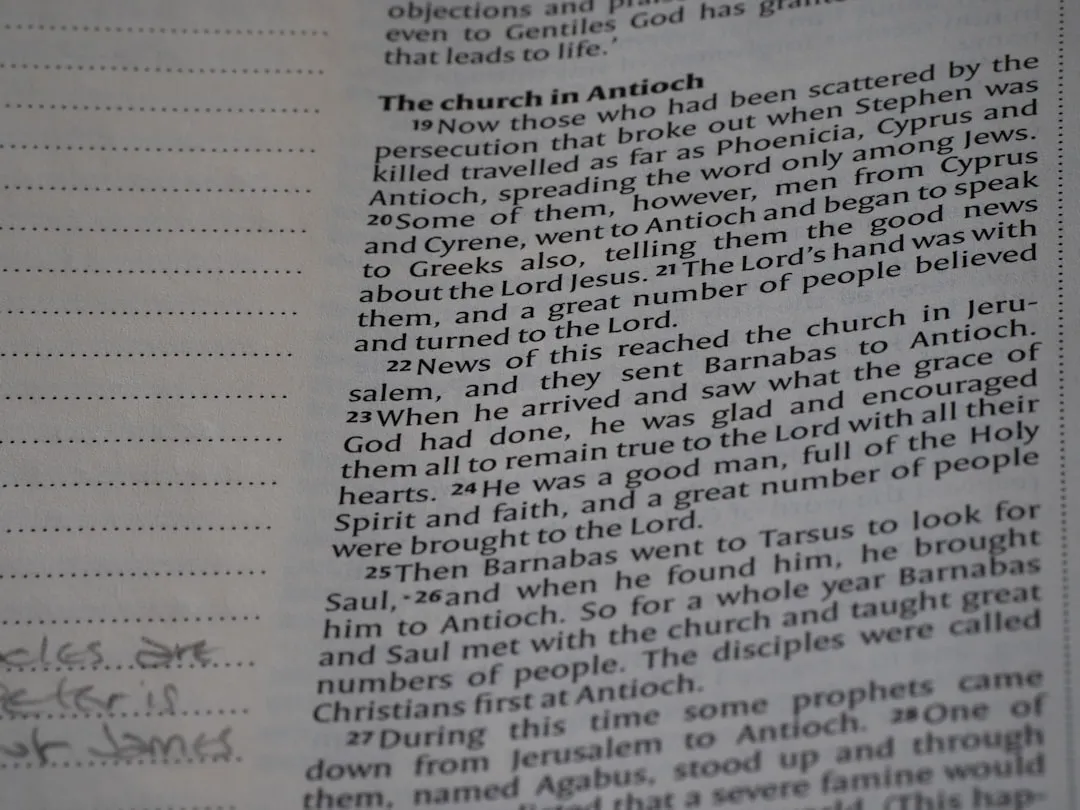 objections and
even to Gentiles God has
that leads to life.'
The church in Antioch
19 Now those who had been scattered by the
persecution that broke out when Stephen was
killed travelled as far as Phoenicia, Cyprus and
Antioch, spreading the word only among Jews.
20 Some of them, however, men from Cyprus
and Cyrene, went to Antioch and began to speak
to Greeks also, telling them the good news
about the Lord Jesus. 21 The Lord's hand was with
them, and a great number of people believed
and turned to the Lord.
22 News of this reached the church in Jeru-
salem, and they sent Barnabas to Antioch.
23 When he arrived and saw what the grace of
God had done, he was glad and encouraged
them all to remain true to the Lord with all their
hearts. 24 He was a good man, full of the Holy
Spirit and faith, and a great number of people
were brought to the Lord.
25 Then Barnabas went to Tarsus to look for
Saul, 26 and when he found him, he brought
him to Antioch. So for a whole year Barnabas
and Saul met with the church and taught great
numbers of people. The disciples were called
Christians first at Antioch.
27 During this time some prophets came
down from Jerusalem to Antioch. 28 One of
them, named Agabus, stood up and through
that a severe famine would
(This hap-
are
is
James